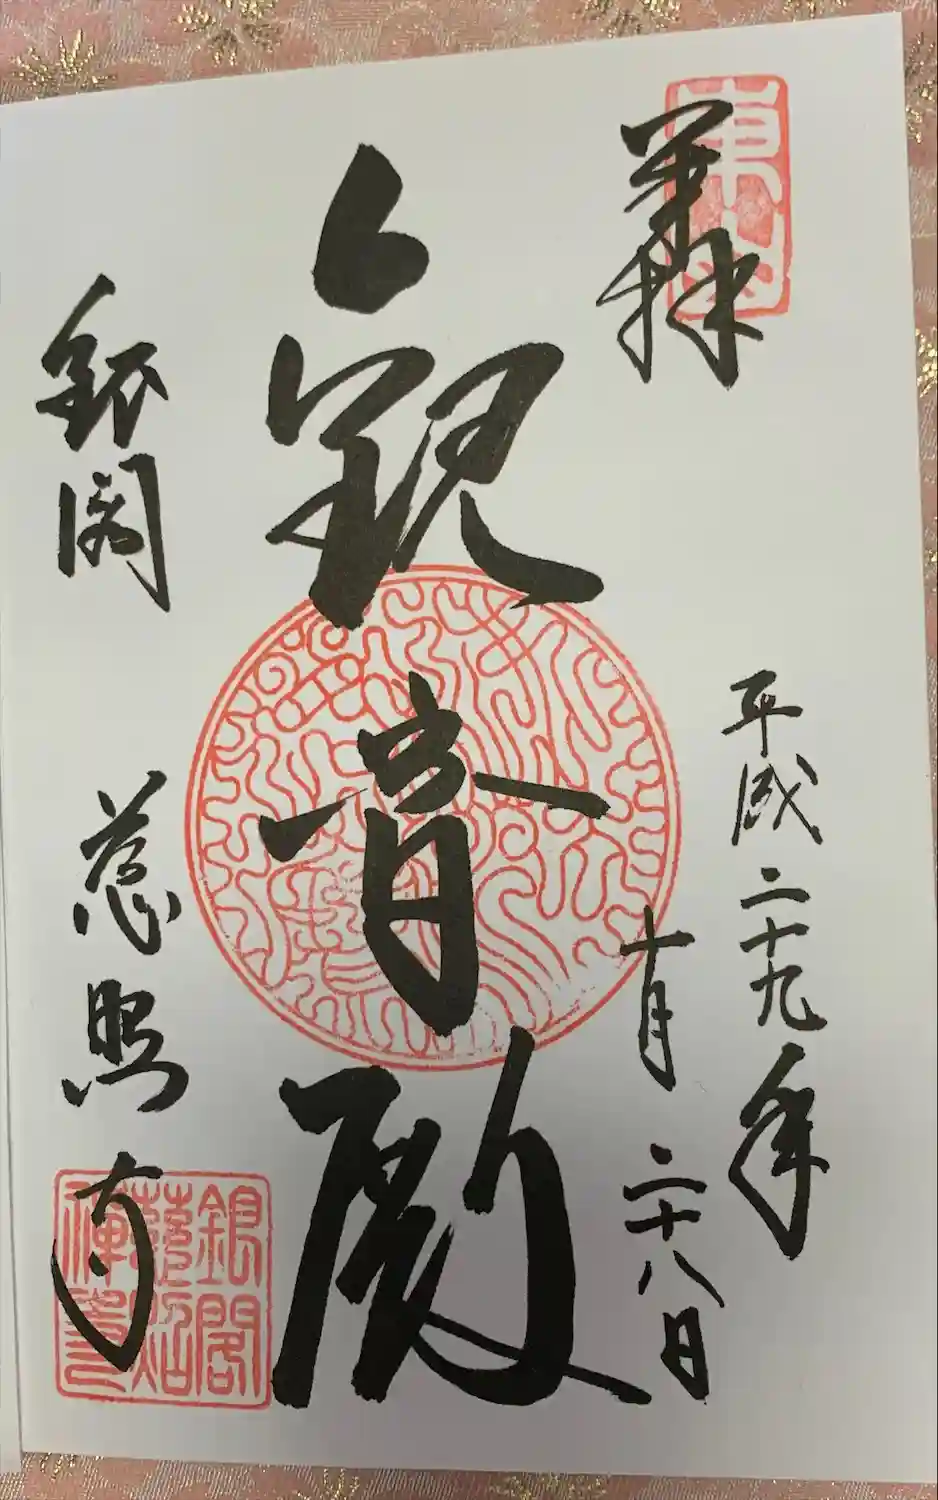 奉拝
東山
平成二十九年
十月二十八日
観音殿
銀閣 慈照寺
銀閣
慈照
禅寺